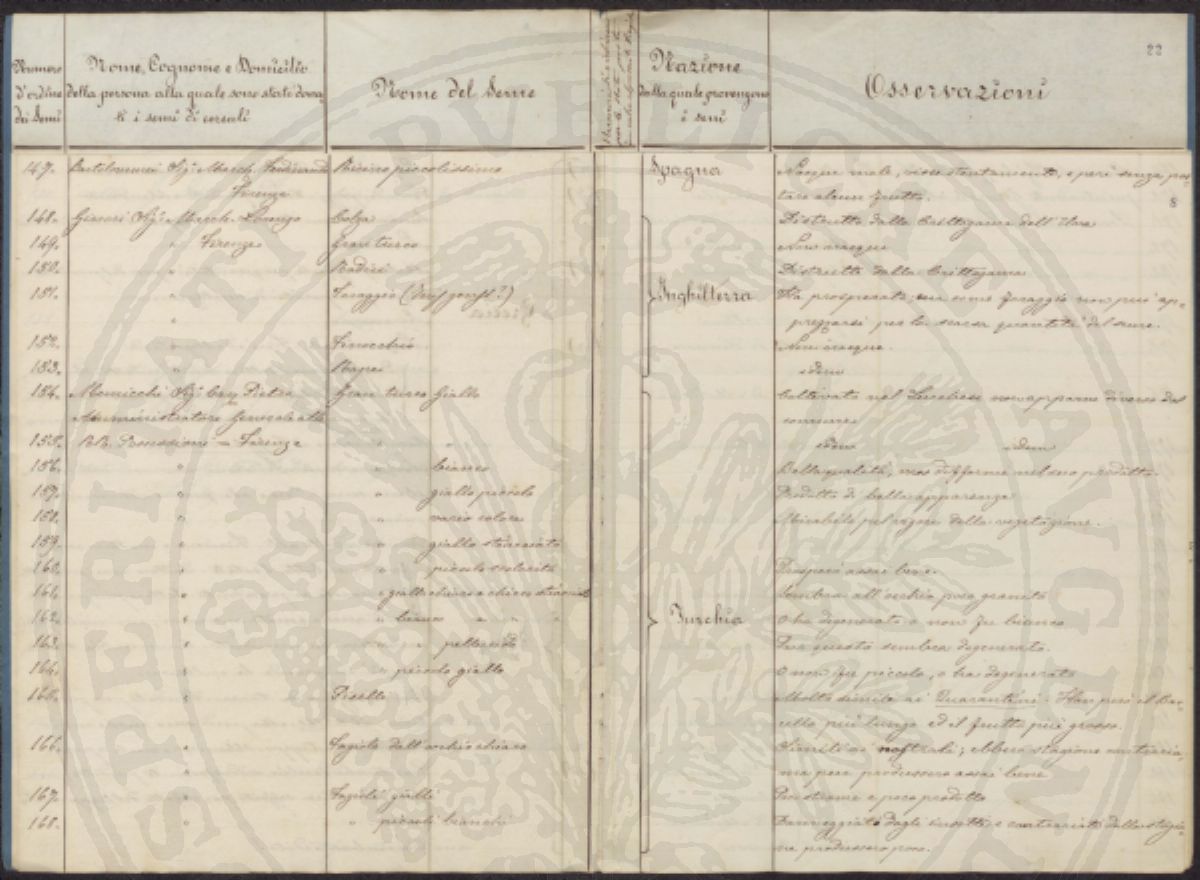 22
Numero d'ordine dei Semi
Nome, Cognome e Domicilio della persona alla quale sono stati donati i semi di cereali
Nome del Seme
Nazione dalla quale provengono i semi
Osservazioni
8
147. Bartolommei Sig.r March. Ferdinando Ricino piccolissimo Spagna Nacque male, visse stentamente, e perì senza por-
Firenze tare alcun frutto.
148. Ginori Sig.r March. Lorenzo Colza Distrutto dalla Crittogama dell'
149. " Firenze Gran turco Non nacque
150. " Radici Distrutto dalla Crittogama
151. " Foraggio Inghilterra Ha prosperato; ma come foraggio non può ap-
" prezzarsi per la scarsa quantità del seme.
152. " Finocchio Non nacque.
153. " Rape idem
154. Municchi Sig.r Cav. Pietro Gran turco Giallo Coltivato nel non apparve diverso dal
Amministratore Generale delle comune
155. RR. Possessioni = Firenze " " idem idem
156. " " bianco Bella qualità, ma difforme nel suo prodotto.
157. " " giallo piccolo Prodotto di bella apparenza
158. " " vario colore Mirabile pel vigore della vegetazione.
159. " " giallo
160. " " piccolo Prosperò assai bene.
161. " " giallo chiaro e Sembra all'occhio poco granito
162. " " bianco " " " Turchia O ha degenerato o non fu bianco
163. " " " Pur questo sembra degenerato.
164. " " piccolo giallo O non fu piccolo, o ha degenerato
165. " Piselli Molto simili ai Quarantini. Han però il Ba-
cello più lungo ed il frutto più grosso.
166. " Fagioli dall'occhio chiaro Simili ai nostrali; ebbero stagione contraria,
" ma pure produssero assai bene
167. " Fagioli gialli e poco prodotto
168. " " piccoli bianchi Danneggiati dagli insetti e contrariati dalla stagio-
ne produssero poco.